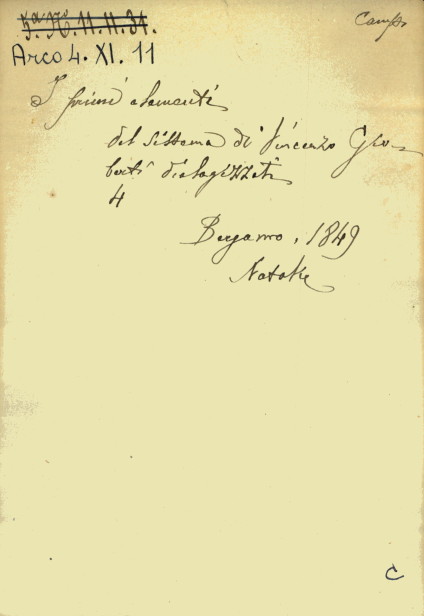 5ª Nº 11. 11. 31.
Campo
Arco 4. XI. 11
I primi elementi
del sistema di Vincenzo Gio-
berti dialogizzati
4
Bergamo, 1849
Natale
C